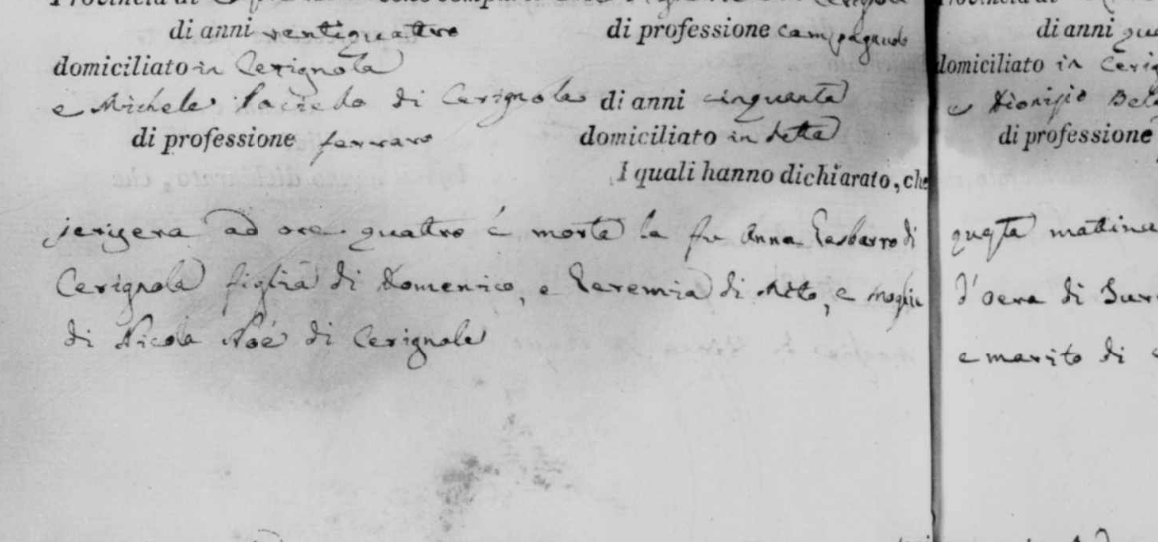 Provincia di
di anni ventiquattro di professione campagnuolo
domiciliato in Cerignola
e Michele di Cerignola di anni cinquanta
di professione ferraro domiciliato in detta
I quali hanno dichiarato, che
jerisera ad ore quattro é morta la fu Anna Gasbarro di
Cerignola figlia di Domenico, e Geremia di Mito, e moglie
di Nicola Noé di Cerignola
Provincia di
di anni
domiciliato in
e Dionisio
di professione
questa mattina
d'
e marito di